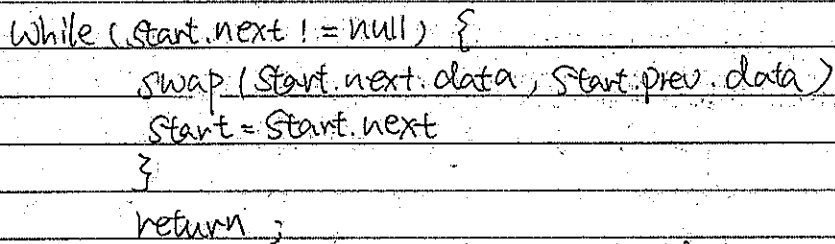 while (start.next != null) {
swap (start.next.data, start.prev.data)
start = start.next
}
return ;